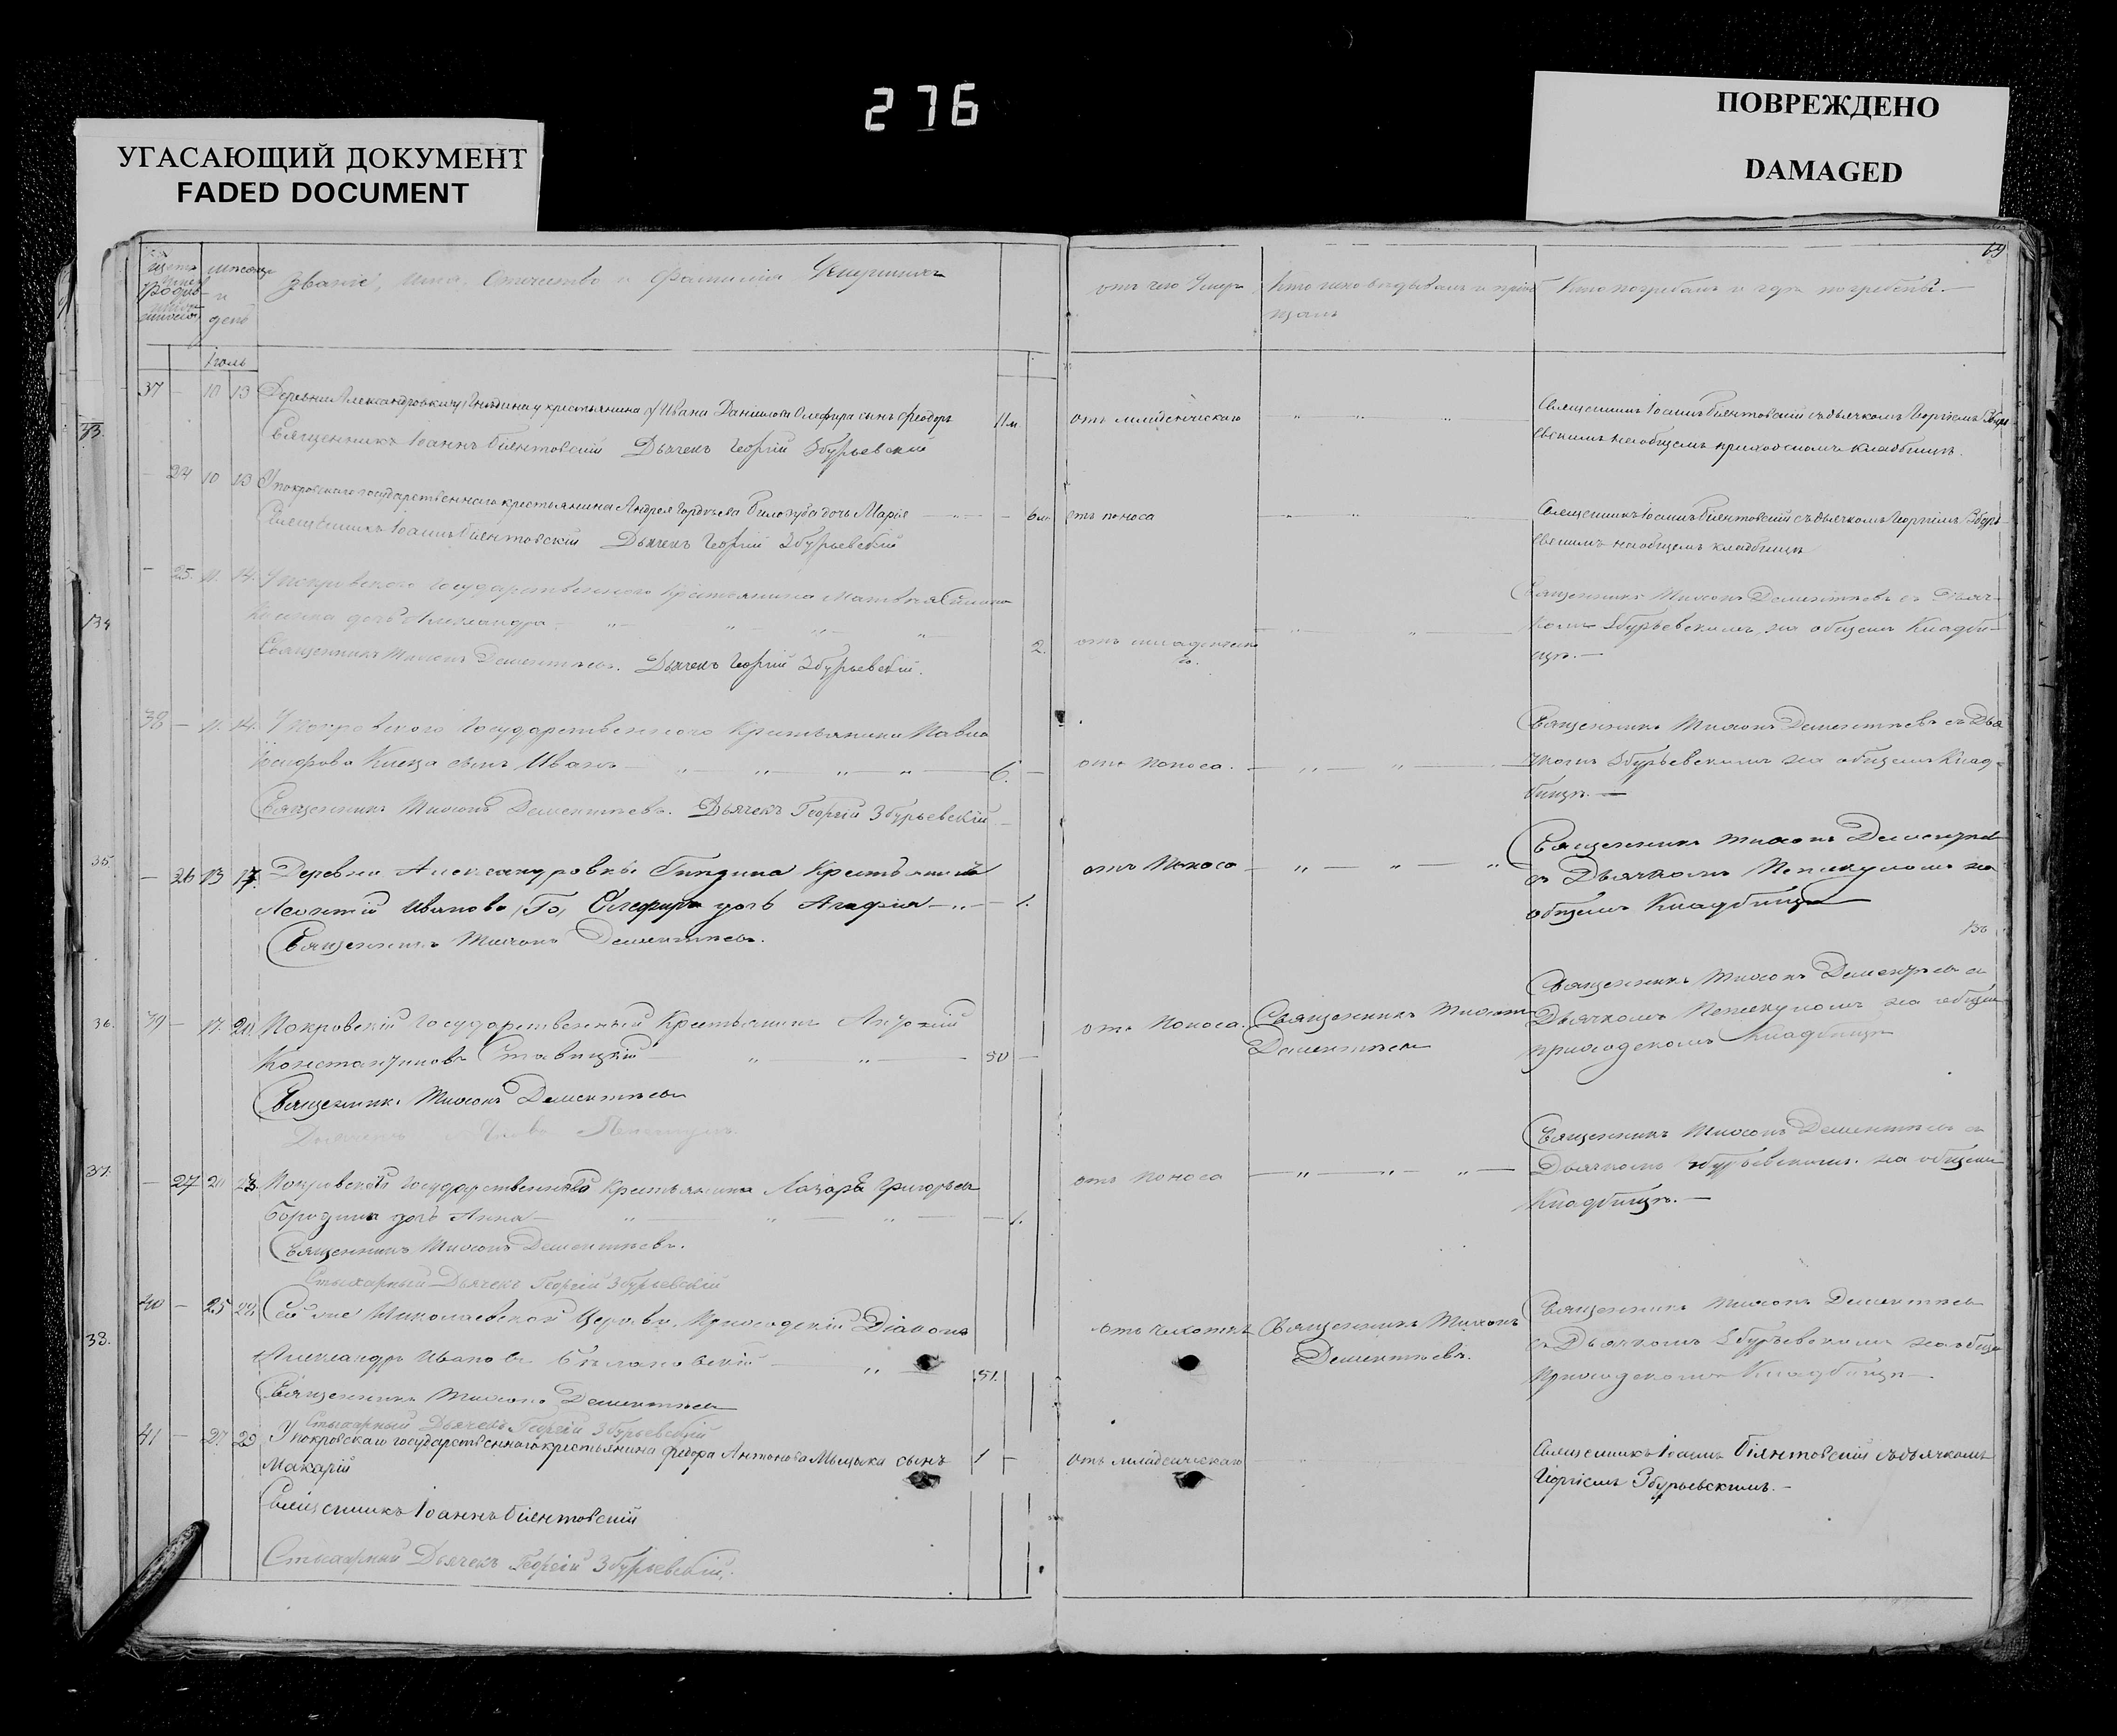 276
УГАСАЮЩИЙ ДОКУМЕНТ
FADED DOCUMENT
ПОВРЕЖДЕНО
DAMAGED
69
Званіе, Имя, Отчество и Фамилія Умершихъ
отъ чего Умеръ
Кто исповѣдывалъ и пріоб
щалъ
Кто погребалъ и гдѣ погребены.
мѣсяцъ
и
день
Іюль
37 — 10 13 Деревни Александровки крестьянина Ивана Данилова Олефира сынъ Феодоръ 11м
отъ младенческаго
Священникъ Іоаннъ Біянтовскій съ дьячкомъ Георгіемъ Збурь
евскимъ на общемъ приходскомъ кладбищѣ.
Священникъ Іоаннъ Біянтовскій Дьячекъ Георгій Збурьевскій
— 24 10 13 У покровскаго государственнаго крестьянина Андрея Гордѣева Билозуба дочь Марія — 6м
отъ поноса
Священникъ Іоаннъ Біянтовскій съ дьячкомъ Георгіемъ Збурь
евскимъ на общемъ кладбищѣ
Священникъ Іоаннъ Біянтовскій Дьячекъ Георгій Збурьевскій
— 25. 11. 14. У покровского Государственного Крестьянина Матвѣя
дочь Александра — 2.
134
Священникъ Тихонъ Дементьевъ съ Дьяч
комъ Збурьевскимъ, на общемъ Кладби
щѣ. —
Священникъ Тихонъ Дементьевъ. Дьячекъ Георгій Збурьевскій.
38 — 11. 14. У Покровского Государственного Крестьянина Павла
Кисца сынъ Иванъ — 6. —
отъ Поноса.
Священникъ Тихонъ Дементьевъ съ Дья
чкомъ Збурьевскимъ на общемъ Клад
бищѣ. —
Священникъ Тихонъ Дементьевъ. Дьячекъ Георгій Збурьевскій
35.
— 26 13 17. Деревни Александровки Крестьянина
Леонтій Иванова Олефира дочь Агафія — 1.
отъ Поноса
Священникъ Тихонъ Дементьев
съ Дьячкомъ на
общемъ Кладбищѣ
Священникъ Тихонъ Дементьевъ.
136
36. 39 — 17. 20. Покровскій Государственный Крестьянинъ Антоній
Константиновъ Ставицкій — 50 —
отъ Поноса.
Священникъ Тихонъ
Дементьевъ
Священникъ Тихонъ Дементьевъ съ
Дьячкомъ на общемъ
приходскомъ Кладбищѣ
Священникъ Тихонъ Дементьевъ
Дьячекъ
37.
— 27 21 23 Покровского Государственного Крестьянина Лазаря Григорьева
Бородина дочь Анна — 1.
отъ Поноса
Священникъ Тихонъ Дементьевъ съ
Дьячкомъ Збурьевскимъ. на общемъ
Кладбищѣ. —
Священникъ Тихонъ Дементьевъ.
Стихарный Дьячекъ Георгій Збурьевскій
38.
40 — 25 28 Николаевской Церкви, Приходскій Діаконъ
Александръ Ивановъ — 51.
отъ чахотки
Священникъ Тихонъ
Дементьевъ.
Священникъ Тихонъ Дементьевъ
съ Дьячкомъ Збурьевскимъ на общемъ
Приходскомъ Кладбищѣ —
Священникъ Тихонъ Дементьевъ
Стихарный Дьячекъ Георгій Збурьевскій
41 — 27. 29 У покровскаго государственнаго крестьянина Федора Антонова Мыцыка сынъ 1 —
Макарій
отъ младенческаго
Священникъ Іоаннъ Біянтовскій съ дьячкомъ
Георгіемъ Збурьевскимъ. —
Священникъ Іоаннъ Біянтовскій
Стихарный Дьячекъ Георгій Збурьевскій.